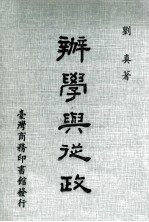 劉真著
辦學與從政
臺灣商務印書館發行